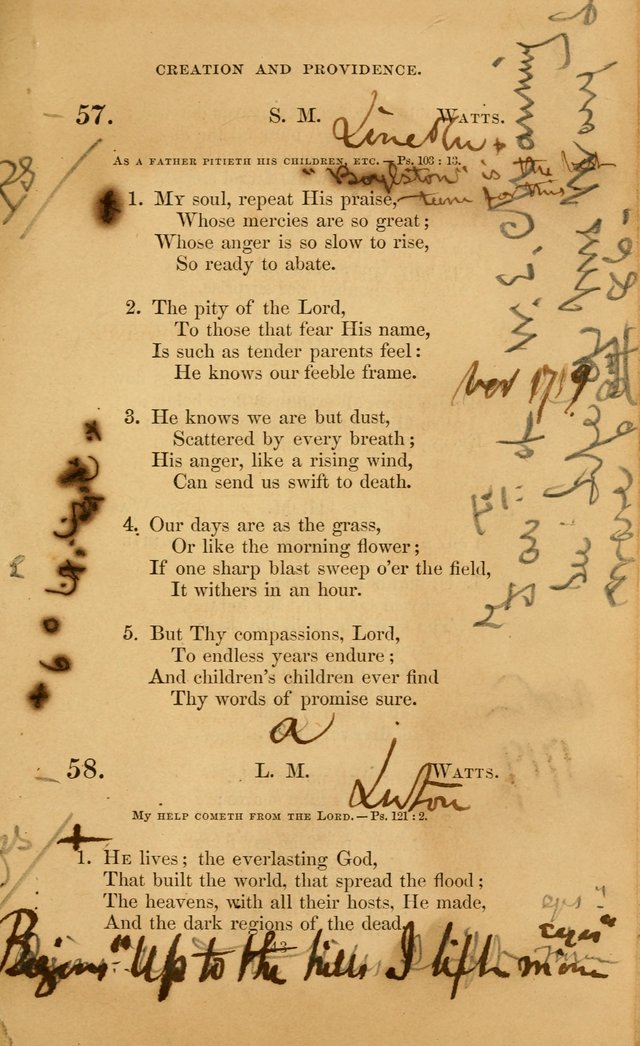 CREATION AND PROVIDENCE.
57. S. M. WATTS.
Lincoln
AS A FATHER PITIETH HIS CHILDREN, ETC.—Ps. 103 : 13.
"Boylston" is the best
tune for this
1. MY soul, repeat His praise,
Whose mercies are so great;
Whose anger is so slow to rise,
So ready to abate.
2. The pity of the Lord,
To those that fear His name,
Is such as tender parents feel:
He knows our feeble frame.
1719
3. He knows we are but dust,
Scattered by every breath;
His anger, like a rising wind,
Can send us swift to death.
4. Our days are as the grass,
Or like the morning flower;
If one sharp blast sweep o'er the field,
It withers in an hour.
5. But Thy compassions, Lord,
To endless years endure;
And children's children ever find
Thy words of promise sure.
a
58. L. M. WATTS.
Luton
MY HELP COMETH FROM THE LORD.—Ps. 121 : 2.
1. HE lives; the everlasting God,
That built the world, that spread the flood;
The heavens, with all their hosts, He made,
And the dark regions of the dead.
eyes"
Begins "Up to the hills I lift mine